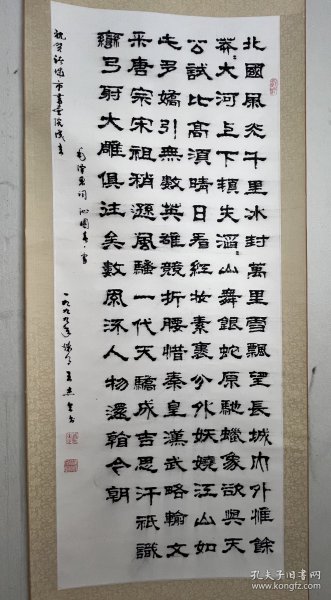 北國風光千里冰封萬里雪飄望長城內外惟餘
莽々大河上下頓失滔々山舞銀蛇原馳蠟象欲與天
公試比高須晴日看紅妝素裹分外妖嬈江山如
此多嬌引無數英雄競折腰惜秦皇漢武略輸文
采唐宗宋祖稍遜風騷一代天驕成吉思汗祇識
彎弓射大雕俱往矣數風流人物還看今朝
毛澤東詞 沁園春·雪
一九九九年
祝賀 市書畫院成立
孔夫子旧书网
www.kongfz.com